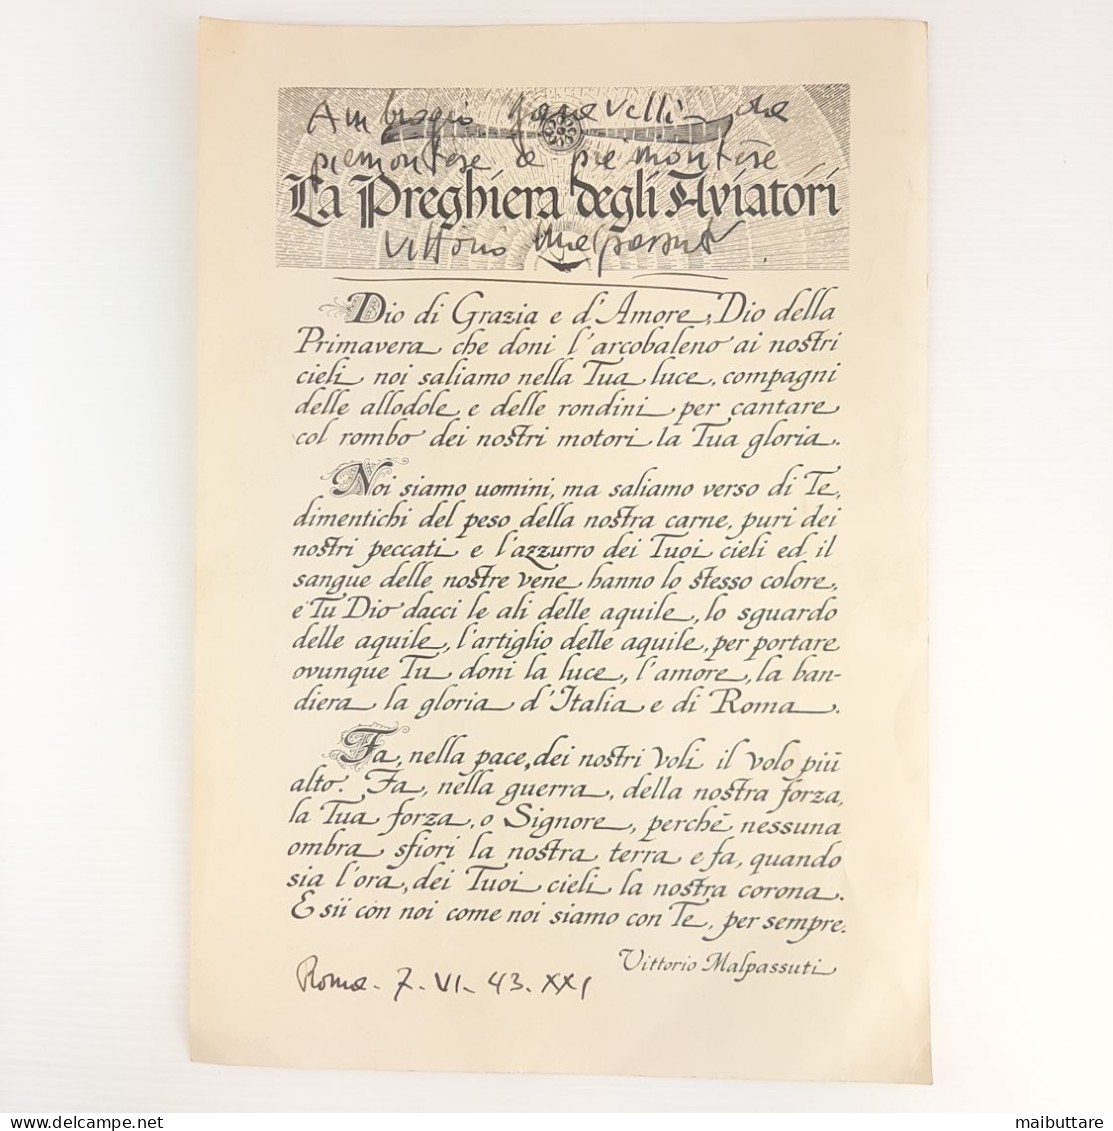 Ambrogio da
piemontese a piemontese
La Preghiera degli Aviatori
Vittorio Malpassuti
Dio di Grazia e d'Amore, Dio della
Primavera che doni l'arcobaleno ai nostri
cieli noi saliamo nella Tua luce, compagni
delle allodole e delle rondini per cantare
col rombo dei nostri motori la Tua gloria.
Noi siamo uomini, ma saliamo verso di Te,
dimentichi del peso della nostra carne, puri dei
nostri peccati e l'azzurro dei Tuoi cieli ed il
sangue delle nostre vene hanno lo stesso colore,
e Tu Dio dacci le ali delle aquile, lo sguardo
delle aquile, l'artiglio delle aquile, per portare
ovunque Tu doni la luce, l'amore, la ban-
diera la gloria d'Italia e di Roma.
Fa, nella pace, dei nostri voli il volo più
alto. Fa, nella guerra, della nostra forza,
la Tua forza, o Signore, perchè nessuna
ombra sfiori la nostra terra e fa, quando
sia l'ora, dei Tuoi cieli la nostra corona.
E sii con noi come noi siamo con Te, per sempre.
Vittorio Malpassuti
Roma. 7. VI. 43. XXI
maibuttare